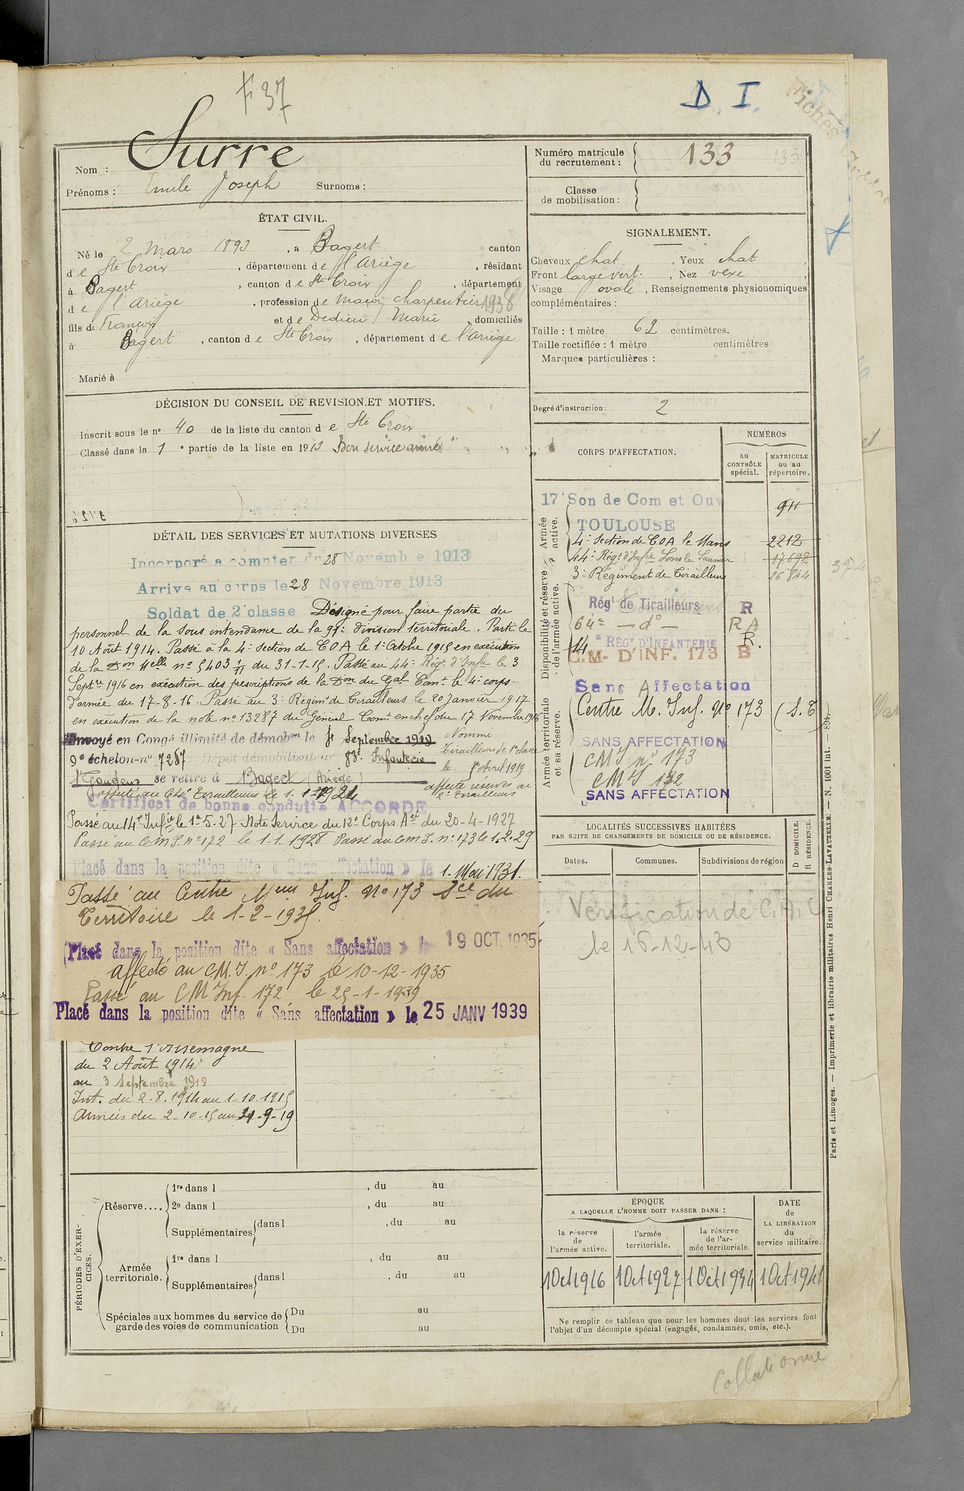 F 37
D. I.
Fichés
Nom : Surre
Prénoms : Emile Joseph Surnoms :
Numéro matricule du recrutement : 133
Classe de mobilisation :
ÉTAT CIVIL.
Né le 2 Mars 1893, à Bagert canton
de Ste Croix, département de l'Ariège, résidant
à Bagert, canton de Ste Croix, département
de l'Ariège, profession de maçon charpentier 1938
fils de François et de Dedieu Marie, domiciliés
à Bagert, canton de Ste Croix, département de l'Ariège
Marié à
SIGNALEMENT.
Cheveux chat. , Yeux chat
Front large vert. , Nez vexe
Visage ovale , Renseignements physionomiques
complémentaires :
Taille : 1 mètre 62 centimètres.
Taille rectifiée : 1 mètre centimètres
Marques particulières :
Degré d'instruction : 2
DÉCISION DU CONSEIL DE REVISION ET MOTIFS.
Inscrit sous le n° 40 de la liste du canton de Ste Croix
Classé dans la 1e partie de la liste en 1913 Bon service armé
DÉTAIL DES SERVICES ET MUTATIONS DIVERSES
Incorporé à compter du 28 Novembre 1913
Arrivé au corps le 28 Novembre 1913
Soldat de 2e classe Désigné pour faire partie du
personnel de la sous intendance de la division territoriale. Parti le
10 Août 1914. Passé à la 4e section de COA le 1er Octobre 1915 en exécution
de la Don Melle n° 5403 du 31-1-15. Passé au 44e Régt d'Infie le 3
Septre 1916 en exécution des prescriptions de la Don du Gal Comt le 4e corps
d'armée du 17-8-16. Passé au 3e Régimt de Tirailleurs le 20 Janvier 1917
en exécution de la note n° 13287 du Général Comt en chef du 17 Novembre 1916
Envoyé en Congé illimité de démobon le Septembre 1919
9e échelon n° 7287 Dépôt démobilisateur 83e Infanterie
St Gaudens se retire à Bagert (Ariège)
Nommé
Tirailleur de 1e classe
le Avril 1919
affecté réserves au
Tirailleurs
Certificat de bonne conduite ACCORDÉ
Passé au 14e Infie le 1er-5-27 Note Service du Corps Aée du 20-4-1927
Passé au CMI. n° 172 le 1.1.1928 Passé au CMI. n° 173 le 1.2.29
Placé dans la position dite « Sans affectation » le 1 Mai 1931.
Passé au Centre Mom Inf. N° 173 Sce du
Territoire le 1-2-193
Placé dans la position dite « Sans affectation » le 19 OCT. 1935
affecté au CM.I n° 173 le 10-12-1935
Passé au CM Inf. 172 le 25-1-1939
Placé dans la position dite « Sans affectation » le 25 JANV 1939
Contre l'Allemagne
du 2 Août 1914
au 3 Septembre 1919
Int. du 2-8-1914 au 1-10-1915
Armées du 2-10-15 au -9-19
CORPS D'AFFECTATION.
NUMÉROS
au CONTRÔLE spécial.
MATRICULE ou au répertoire.
Armée active.
17e Son de Com et Ouv
TOULOUSE
911
4e Section de COA le Mans 2212
44e Régt d'Infie Lons le Saunier
3e Régiment de Tirailleurs
Disponibilité et réserve de l'armée active.
Régt de Tirailleurs R
64e — do — RA
14e REGt D'INFANTERIE R.
C.M. D'INF. 173 B
Armée territoriale et sa réserve.
Sans Affectation
Centre M. Inf. N° 173 (S.T
SANS AFFECTATION
CMI n° 173
CMI 172
SANS AFFECTATION
LOCALITÉS SUCCESSIVES HABITÉES
PAR SUITE DE CHANGEMENTS DE DOMICILE OU DE RÉSIDENCE.
D DOMICILE.
R RÉSIDENCE.
Dates. Communes. Subdivisions de région
Vérification de
le 15-12-43
PÉRIODES D'EXERCICES.
Réserve.... 1re dans l , du au
2e dans l , du au
Supplémentaires dans l , du au
Armée territoriale. 1re dans l , du au
Supplémentaires dans l , du au
Spéciales aux hommes du service de garde des voies de communication Du au
Du au
ÉPOQUE
A LAQUELLE L'HOMME DOIT PASSER DANS :
la réserve de l'armée active.
l'armée territoriale.
la réserve de l'armée territoriale.
DATE de LA LIBÉRATION du service militaire.
1 Oct 1916 1 Oct 1927 1 Oct 1934 1 Oct 1941
Ne remplir ce tableau que pour les hommes dont les services font
l'objet d'un décompte spécial (engagés, condamnés, omis, etc.).
Paris et Limoges. — Imprimerie et librairie militaires Henri CHARLES-LAVAUZELLE.
Collationné